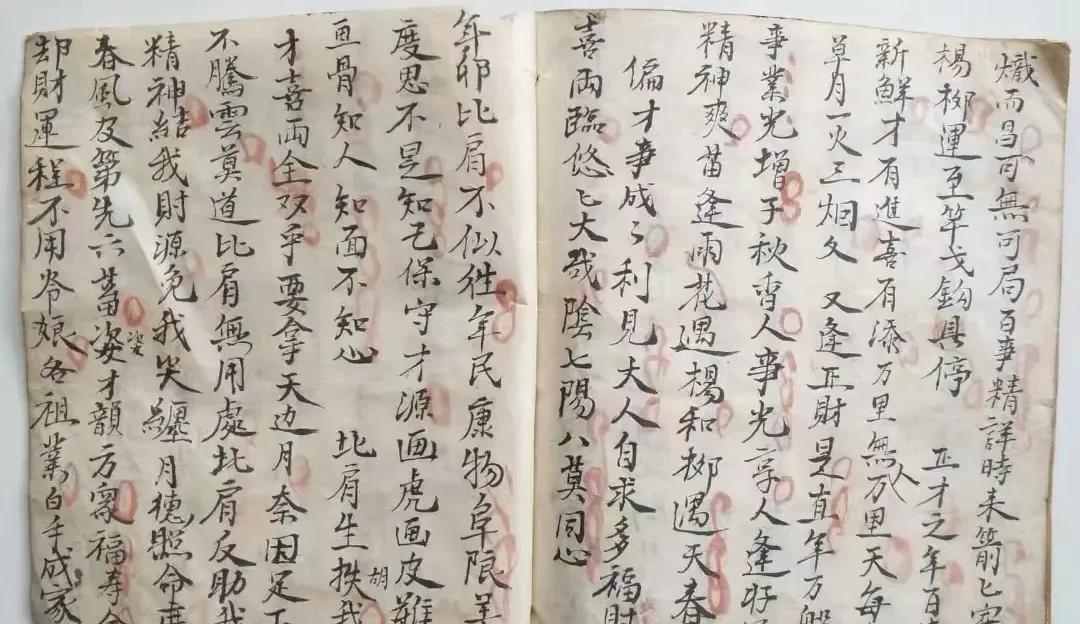 熾而昌可無可局百事精詳時来莭匕
楊柳運至竿戈鈎具停　正才之年百
新鮮才有進喜有添万里無人万里天每
草月一火三烟久　又逢正財是直年万般
事業光增子秋香人事光享人逢好
精神爽苗逢雨花遇楊和柳遇天春
偏才事成々利見大人自求多福財
喜両臨悠匕大哉陰七陽八莫同心
年卯比肩不似徃年民康物阜限羊
度思不是知己保守才源画虎画皮難
画骨知人知面不知心　比肩生扶我
胡
才喜両全双乎要拿天边月奈因足下
不騰雲莫道比肩無用處比肩反助我
精神結我財源免我哭纏月穂照命
春風及第先六畜姿才韻方裏福寿
姿
却財運程不用爷娘各祖業白手成家